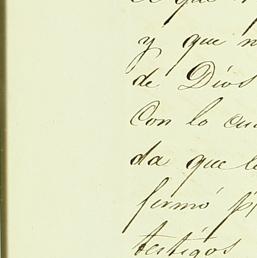 el que
y que n
de Dios
Con lo cua
da que le
firmó p
testigos